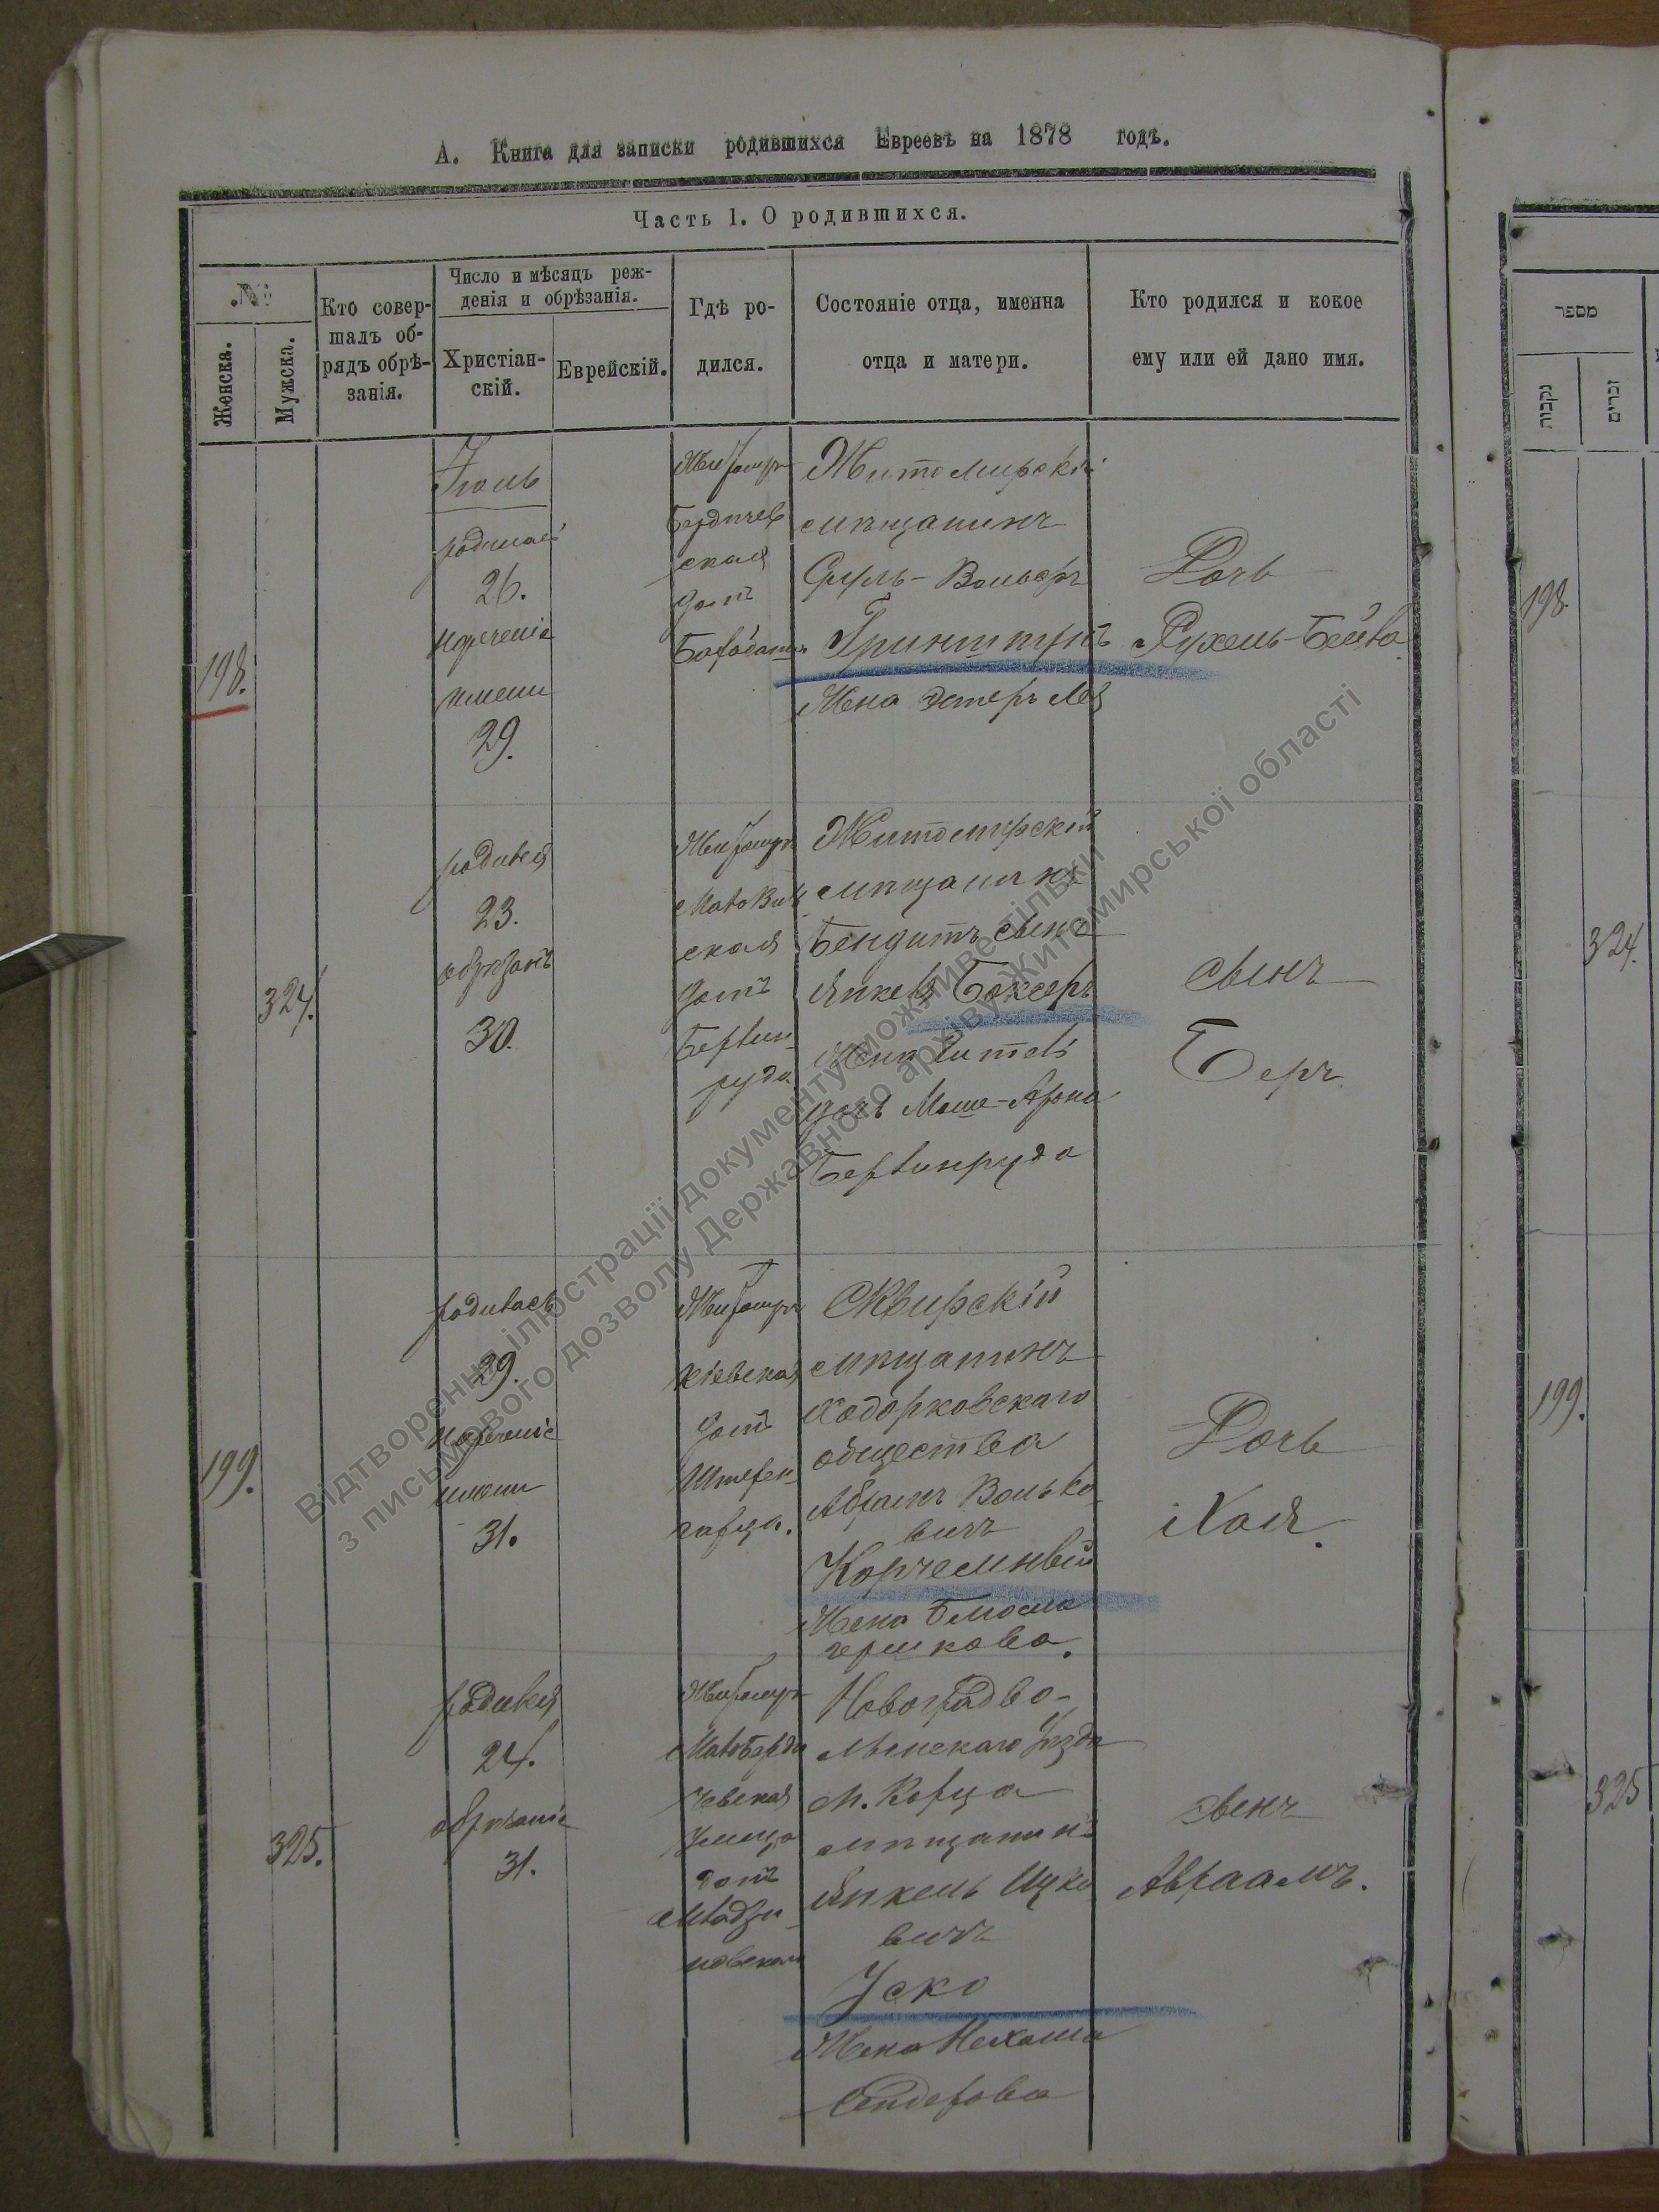 А. Книга для записки родившихся Евреевъ на 1878 годъ.
Часть 1. О родившихся.
№
Женска.
Мужска.
Кто совер-
шалъ об-
рядъ обрѣ-
занія.
Число и мѣсяцъ реж-
денія и обрѣзанія.
Христіан-
скій.
Еврейскій.
Гдѣ ро-
дился.
Состояніе отца, именна
отца и матери.
Кто родился и кокое
ему или ей дано имя.
198.
Іюль
26.
нареченіе
имени
29.
Житомиръ
Бердичев
ская
домъ
Житомирскій
мѣщанинъ
Сруль-Вольфъ
Гринштейнъ
Жена Эстеръ Лея
Дочь
Рухель-Бейла
324.
родился
23.
обрѣзанъ
30.
Житомиръ
ская
домъ
Берлин-
руда
Житомирскій
мѣщанинъ
Бендитъ сынъ
Янкеля Боксеръ
Жена
дочь Моше-Арона
Берлинруда
сынъ
Беръ
199.
родилась
29.
нареченіе
имени
31.
Житомиръ
Кіевская
домъ
Штерен-
гарца.
Сквирскій
мѣщанинъ
Ходорковскаго
общества
Абрамъ Волько-
вичъ
Корчемный
Жена Блюма
Гершкова.
Дочь
Хая.
325.
родился
24.
обрѣзаніе
31.
Житомиръ
Малоберди
чевская
улица
домъ
Новоградво-
лынскаго уѣзда
м. Корца
мѣщанинъ
Янкель Ицко
вичъ
Уско
Жена Нехама
Сендерова
сынъ
Авраамъ.
מספר
נקבות
זכרים
198.
324.
199.
325
Відтворення ілюстрації документу можливе тільки
з письмового дозволу Державного архіву Житомирської області